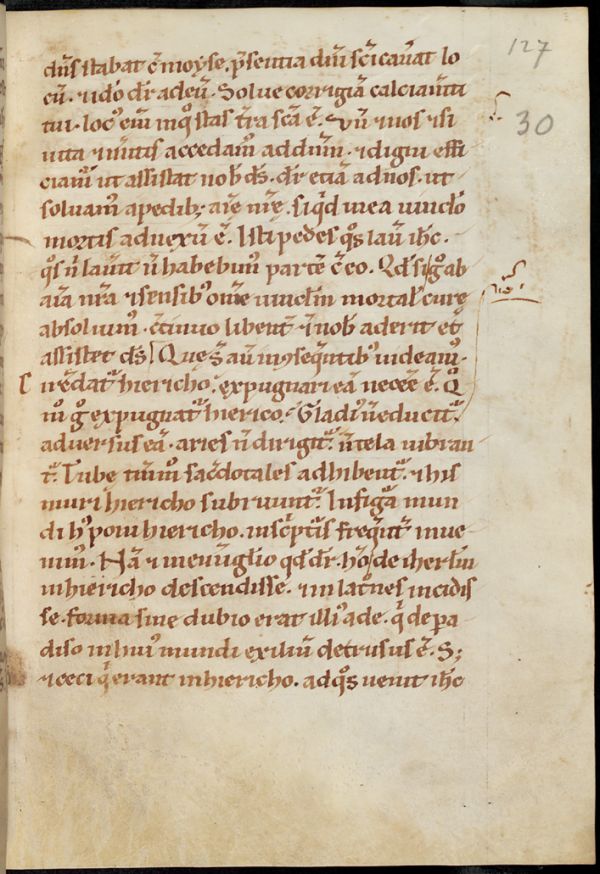 127
30
dn̄s stabat c̄ moyse. p̄sentia dn̄i sc̄icau̅at lo
cū. ⁊ idō dr̄ ad eū. Solue corrigiā calciam̄ti
tui. locꝰ em̄ in qͦ stas t̄ra sc̄a ē. Vn̄ ⁊ nos ⁊ si
uita ⁊ m̄itis accedamꝰ ad dn̄m. ⁊ digni effi
ciamꝰ ut assistat nob̄ ds̄. dr̄ etiā ad nos. ut
soluamꝰ a pedibꝫ aīe nr̄e. siqͥd in ea uinclo᷒
mortis adnexū ē. Isti pedes qͦs lau̅ ih̄c.
qͦs n̄ lau̅it n̄ habebunꝰ partē c̄ eo. Qd̄ si gͦ ab
aīa nr̄a ⁊ sensibꝰ om̄e uinclm̄ mortal᷒ curę
absoluimꝰ. c̄tinuo libent᷒ ⁊ nob̄ aderit et
assistet ds̄. Que s̄ au̅ in seq̄ntibꝰ uideamꝰ.
C̄ue᷒dat᷒ hiericho. expugnari eā necee ē. Qͦ
mͦ gͦ expugnat᷒ hierico. Gladiꝰ n̄ educit᷒
aduersus eā. aries n̄ dirigit᷒. n̄ tela uibran
t᷒. Tube tm̄mͦ sac̄dotales adhibent᷒. ⁊ his
muri hiericho subruunt᷒. In figͣ mun
di hͦ poni hiericho. in sc̄ptis freq̄nt᷒ inue
nimꝰ. Nā ⁊ in eu̅glio qd̄ dr̄. hoīe de iherl̄m
in hiericho descendisse. ⁊ in latͦnes incidis
se. forma sine dubio erat illiꝰ ade. qͥ de pa
diso in huiꝰ mundi exiliū detrusus ē. Sꝫ
⁊ ceci qͥ erant in hiericho. ad qͦs uenit ih̄c